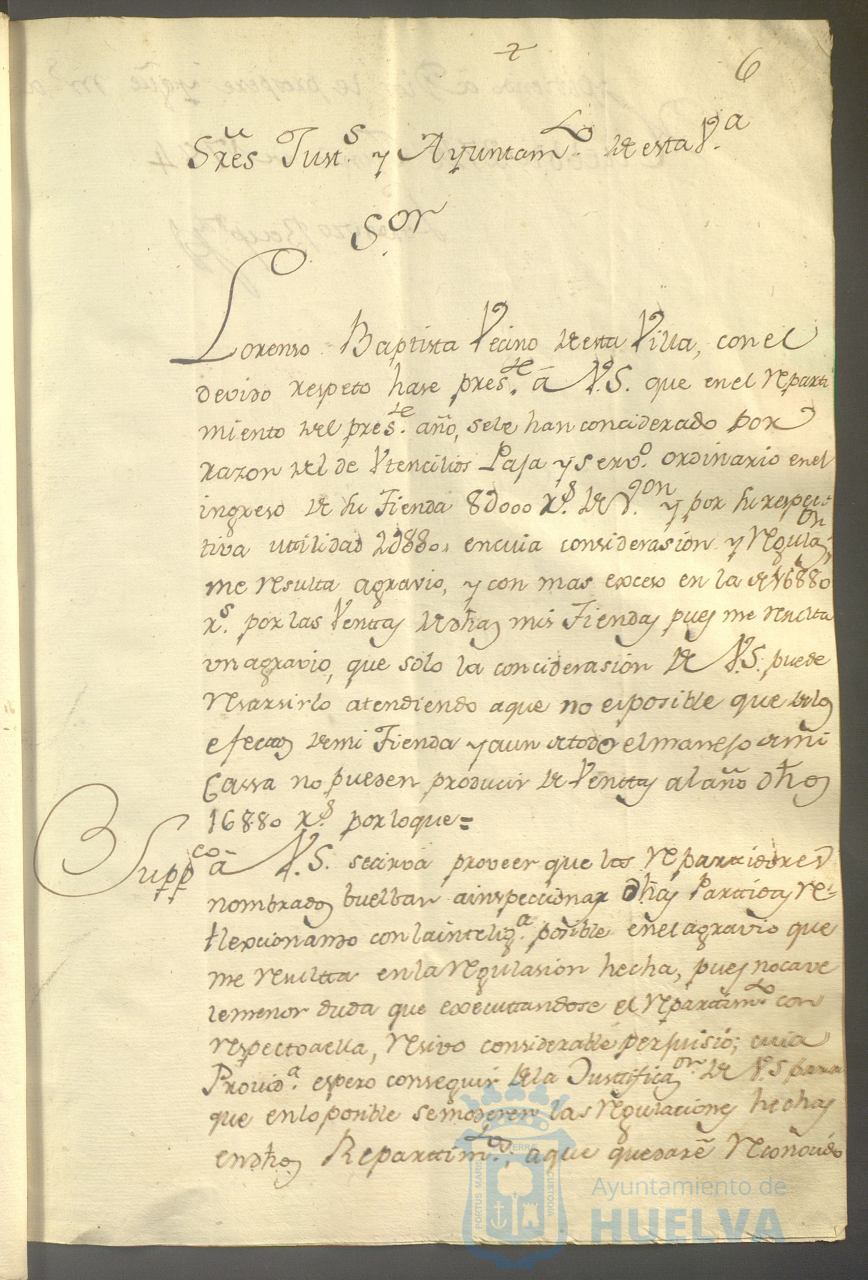 6
Sres Just.s y Ayuntam.to de esta V.a
S.or
Lorenso Baptista Vecino de esta Villa, con el
devido respeto hase pres.te â V.S. que en el reparti
miento del pres.te año, se le han conciderado por
razon del de Vtencilios Paja y Serv.o ordinario en el
ingreso de su Tienda 8d000 r.s de V.on y por su respec-
tiva utilidad 2d880, en cuia considerasion y regulas.on
me resulta agravio, y con mas exceso en la de 16880
r.s por las Ventas de dhas mis Tiendas pues me resulta
vn agravio, que solo la conciderasión de V.S. puede
resarsirlo atendiendo a que no es posible que de los
efectos de mi Tienda y aun de todo el manejo de mi
Cassa no pueden producir de Venttas al año dhos
16880 r.s por lo que=
Supp.co â V.S. se sirva proveer que los repartidores
nombrados buelban a inspeccionar dhas Partidas re-
flexcionando con la intelig.a posible en el agravio que
me resultta en la regulasión hecha, pues no cave
le menor duda que executtandose el repartim.to con
respecto a ella, resivo considerable perjuisio; cuia
Provid.a espero conseguir de la Justtificas.on de V.S para
que en lo posible se moderen las regulaciones hechas
en dhos Reparttim.tos a que quedare reconocido
PORTUS MARIS
TERRE
CUSTODIA
Ayuntamiento de
HUELVA